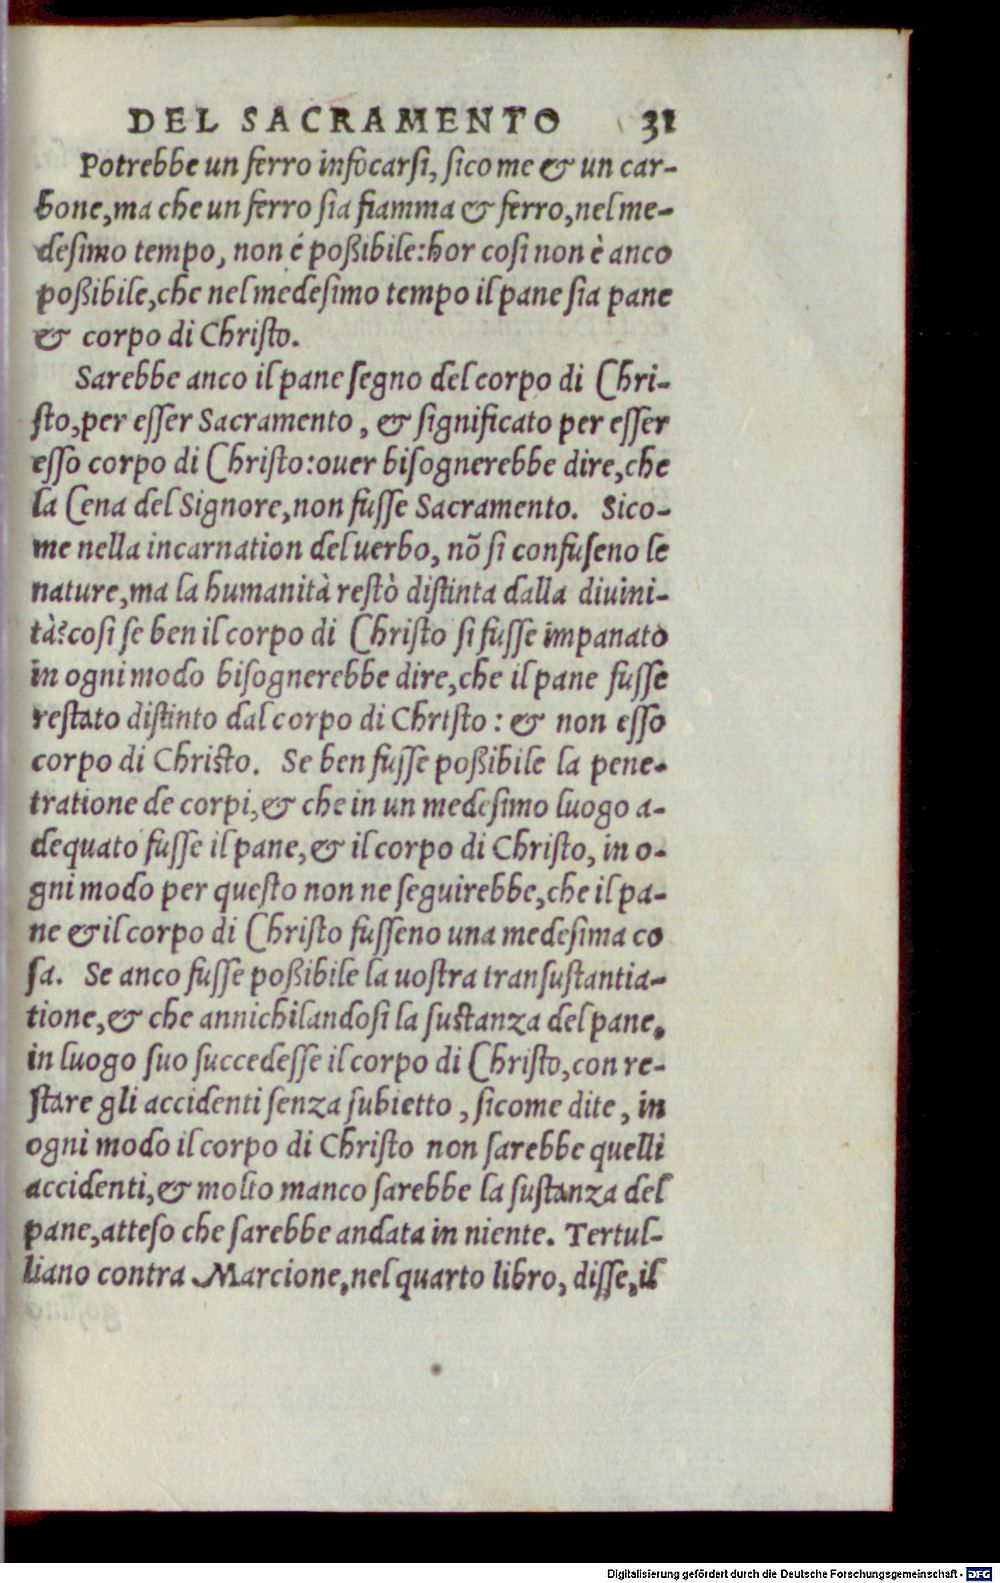 DEL SACRAMENTO 31
Potrebbe un ferro infocarsi, sicome & un car-
bone, ma che un ferro sia fiamma & ferro, nel me-
desimo tempo, non é poßibile: hor cosi non è anco
poßibile, che nel medesimo tempo il pane sia pane
& corpo di Christo.
Sarebbe anco il pane segno del corpo di Chri-
sto, per esser Sacramento, & significato per esser
esso corpo di Christo: ouer bisognerebbe dire, che
la Cena del Signore, non fusse Sacramento. Sico-
me nella incarnation del uerbo, nõ si confuseno le
nature, ma la humanità restò distinta dalla diuini-
tà? cosi se ben il corpo di Christo si fusse impanato
in ogni modo bisognerebbe dire, che il pane fusse
restato distinto dal corpo di Christo: & non esso
corpo di Christo. Se ben fusse poßibile la pene-
tratione de corpi, & che in un medesimo luogo a-
dequato fusse il pane, & il corpo di Christo, in o-
gni modo per questo non ne seguirebbe, che il pa-
ne & il corpo di Christo fusseno una medesima co
sa. Se anco fusse poßibile la uostra transustantia-
tione, & che annichilandosi la sustanza del pane,
in luogo suo succedesse il corpo di Christo, con re-
stare gli accidenti senza subietto, sicome dite, in
ogni modo il corpo di Christo non sarebbe quelli
accidenti, & molto manco sarebbe la sustanza del
pane, atteso che sarebbe andata in niente. Tertul-
liano contra Marcione, nel quarto libro, disse, il
Digitalisierung gefördert durch die Deutsche Forschungsgemeinschaft - DFG